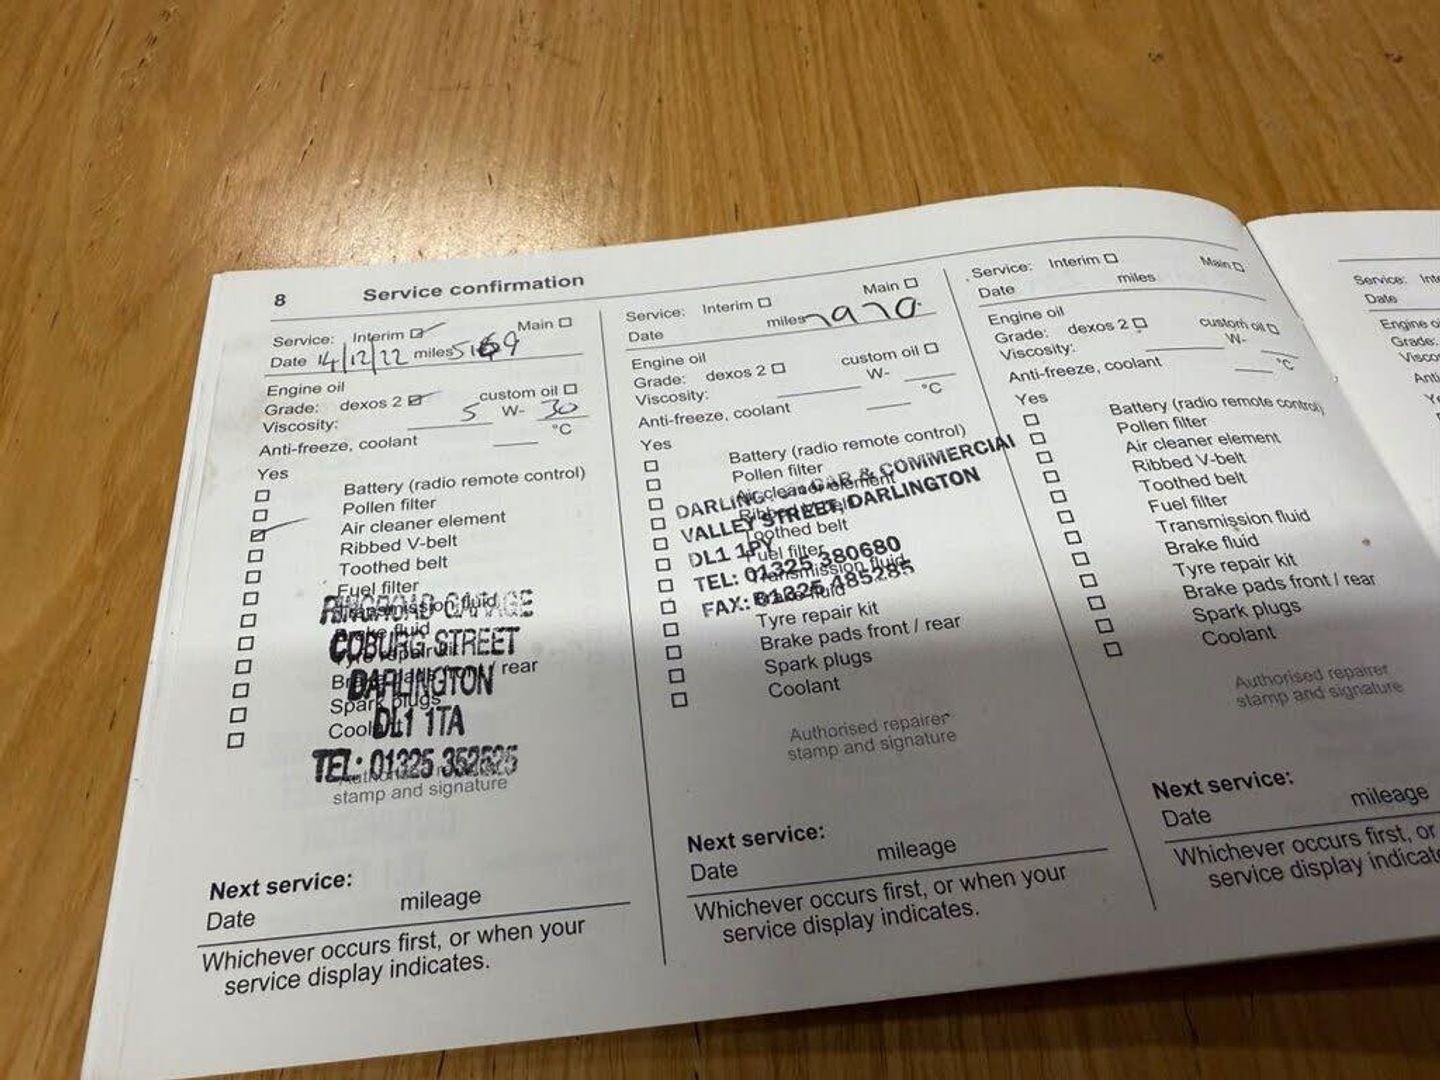 8 Service confirmation
Service: Interim Main
Date 14/12/22 miles 5169
Engine oil
Grade: dexos 2 custom oil
Viscosity: 5 W- 30
Anti-freeze, coolant °C
Yes
Battery (radio remote control)
Pollen filter
Air cleaner element
Ribbed V-belt
Toothed belt
Fuel filter
Transmission fluid
RINGROAD GARAGE
Brake fluid
COBURG STREET
Tyre repair kit
Brake pads front / rear
DARLINGTON
Spark plugs
Coolant
DL1 1TA
TEL: 01325 352525
Authorised repairer
stamp and signature
Next service:
Date mileage
Whichever occurs first, or when your
service display indicates.
Service: Interim Main
Date miles 7970
Engine oil
Grade: dexos 2 custom oil
Viscosity: W-
Anti-freeze, coolant °C
Yes
Battery (radio remote control)
Pollen filter
Air cleaner element
DARLINGTON CAR & COMMERCIAL
Ribbed V-belt
VALLEY STREET, DARLINGTON
Toothed belt
DL1 1PY
Fuel filter
TEL: 01325 380680
Transmission fluid
FAX: 01325 485285
Brake fluid
Tyre repair kit
Brake pads front / rear
Spark plugs
Coolant
Authorised repairer
stamp and signature
Next service:
Date mileage
Whichever occurs first, or when your
service display indicates.
Service: Interim Main
Date miles
Engine oil
Grade: dexos 2 custom oil
Viscosity: W-
Anti-freeze, coolant °C
Yes
Battery (radio remote control)
Pollen filter
Air cleaner element
Ribbed V-belt
Toothed belt
Fuel filter
Transmission fluid
Brake fluid
Tyre repair kit
Brake pads front / rear
Spark plugs
Coolant
Authorised repairer
stamp and signature
Next service:
Date mileage
Whichever occurs first, or
service display indicate
Service: Inte
Date
Engine o
Grade:
Visco
Anti
Ye